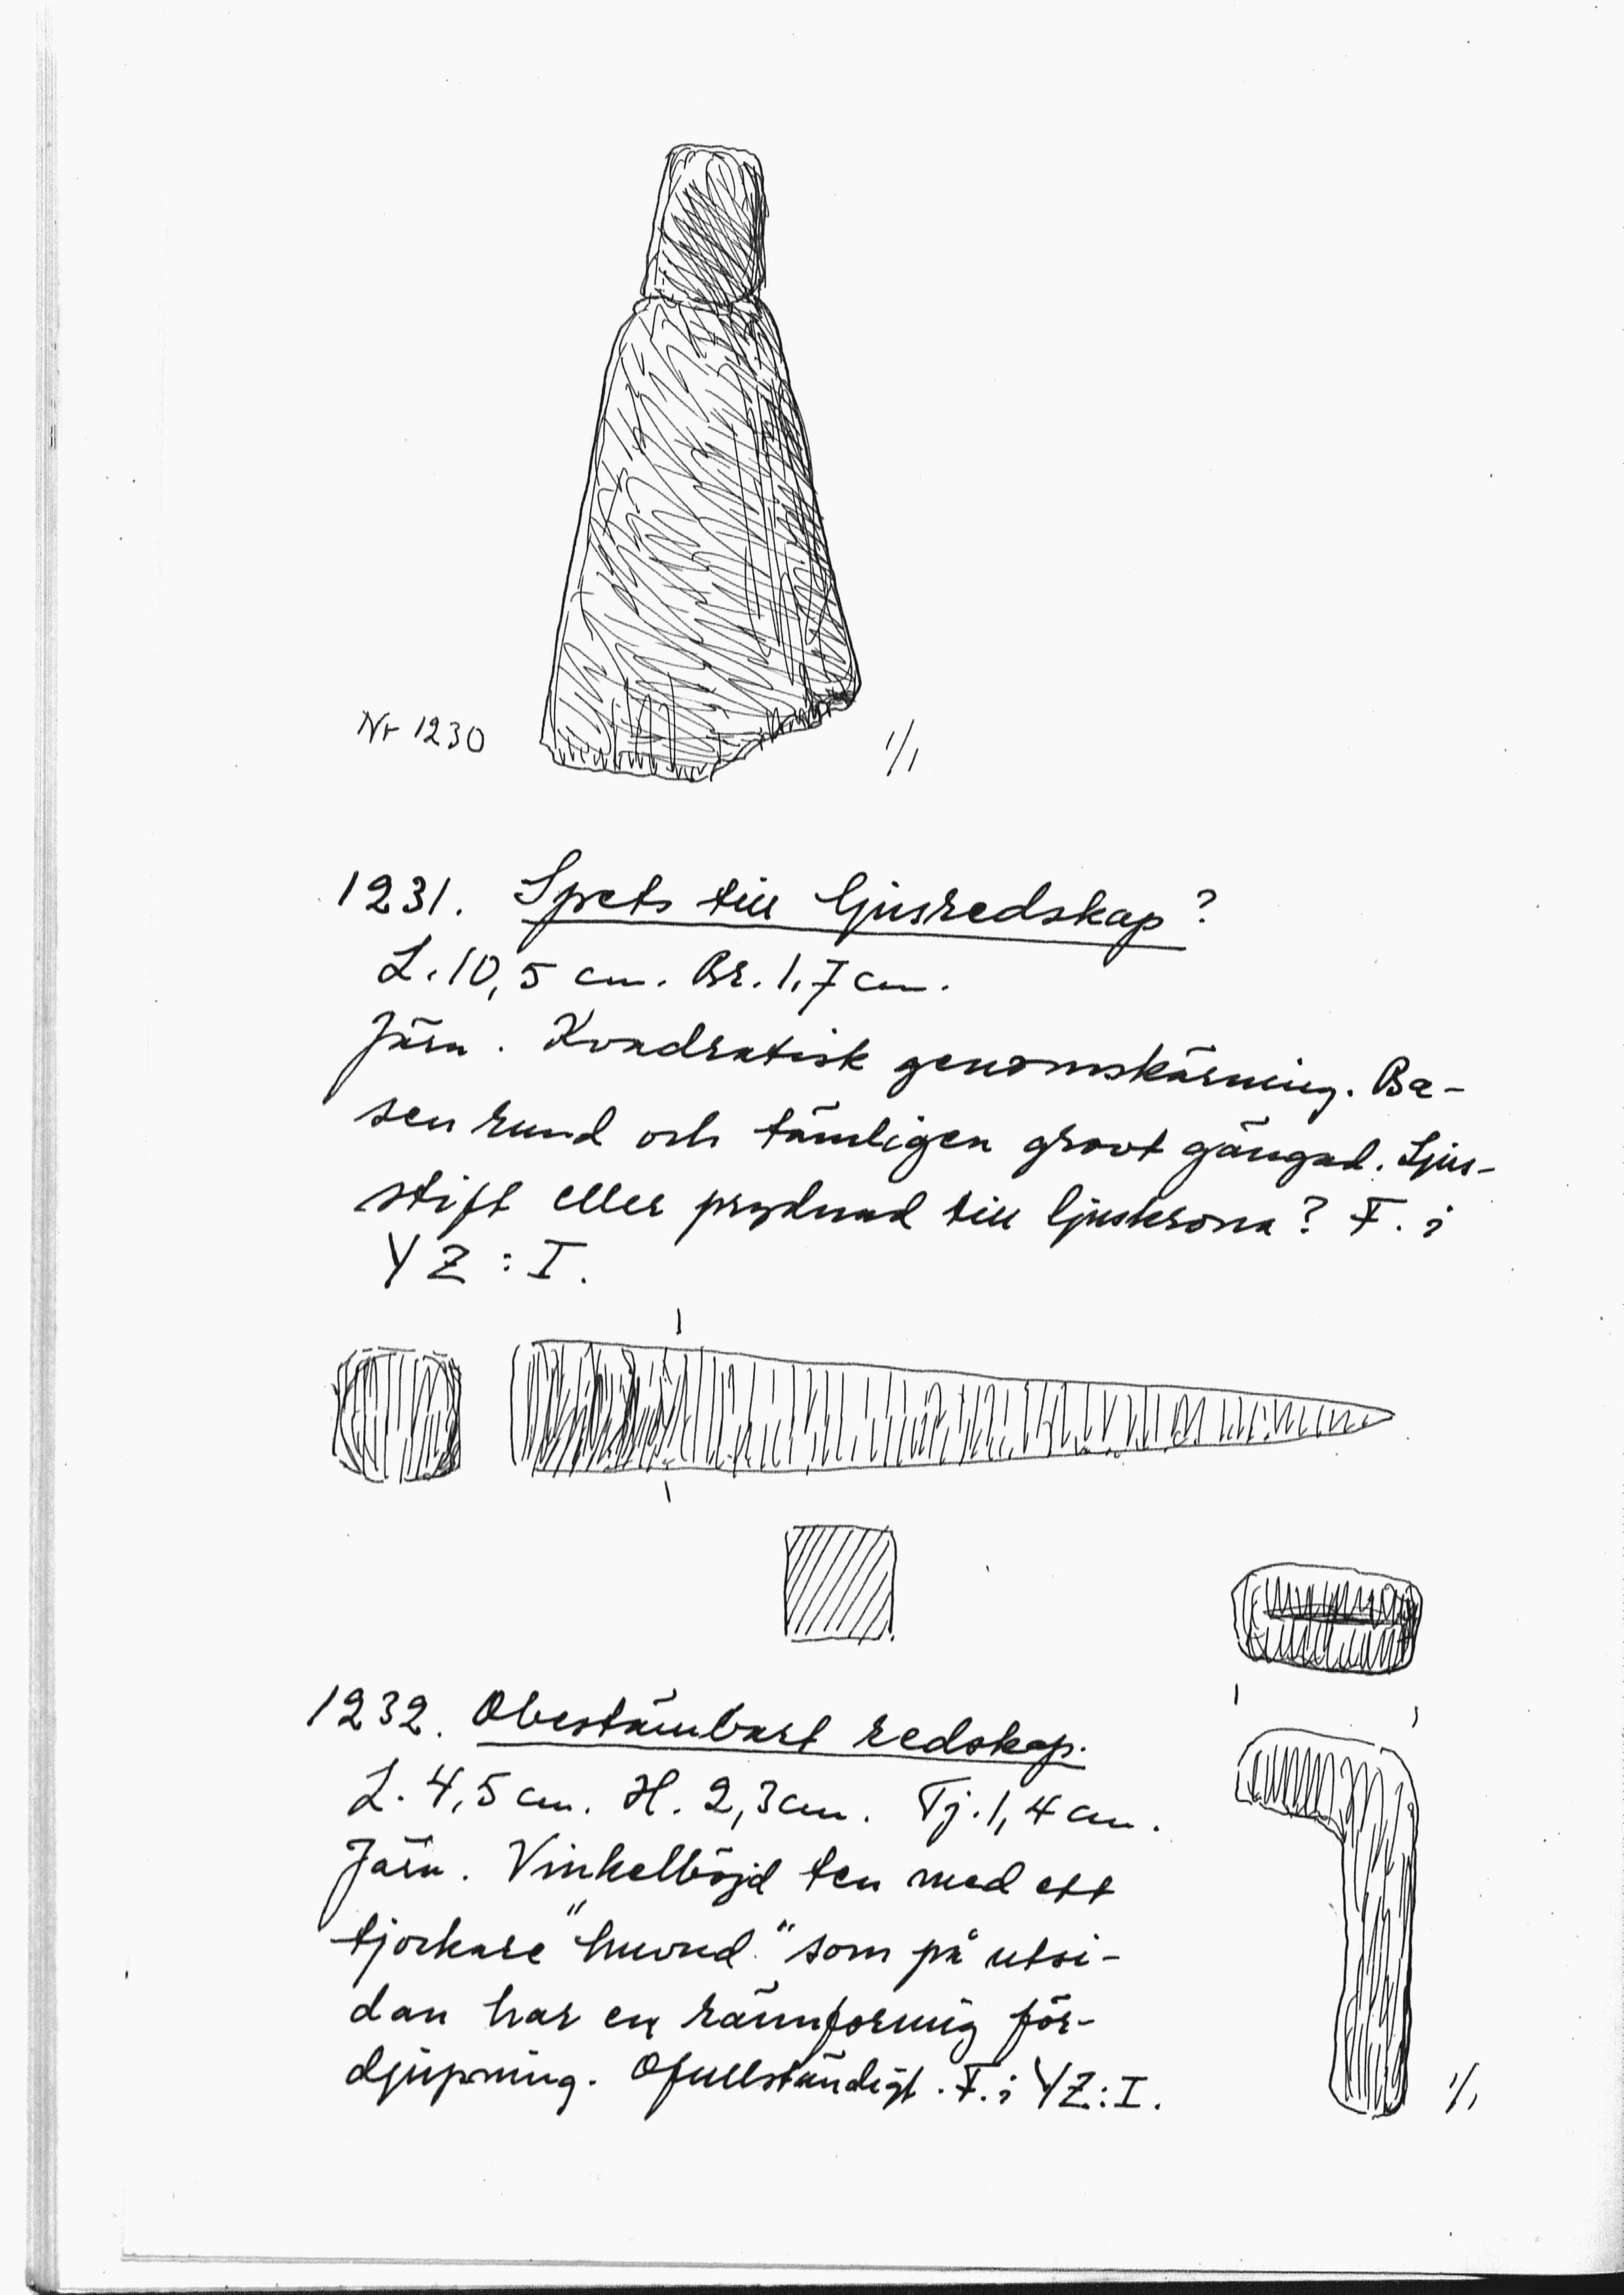 Nr 1230
1/1
1231. Spets till ljusredskap?
L. 10,5 cm. Br. 1,7 cm.
Järn. Kvadratisk genomskärning. Ba-
sen rund och tämligen grovt gängad. Ljus-
stift eller prydnad till ljuskrona? F. i
YZ:I.
1232. Obestämbart redskap.
L. 4,5 cm. H. 2,3 cm. Tj. 1,4 cm.
Järn. Vinkelböjd ten med ett
tjockare "huvud" som på utsi-
dan har en rännformig för-
djupning. Ofullständigt. F. i YZ:I.
1/1